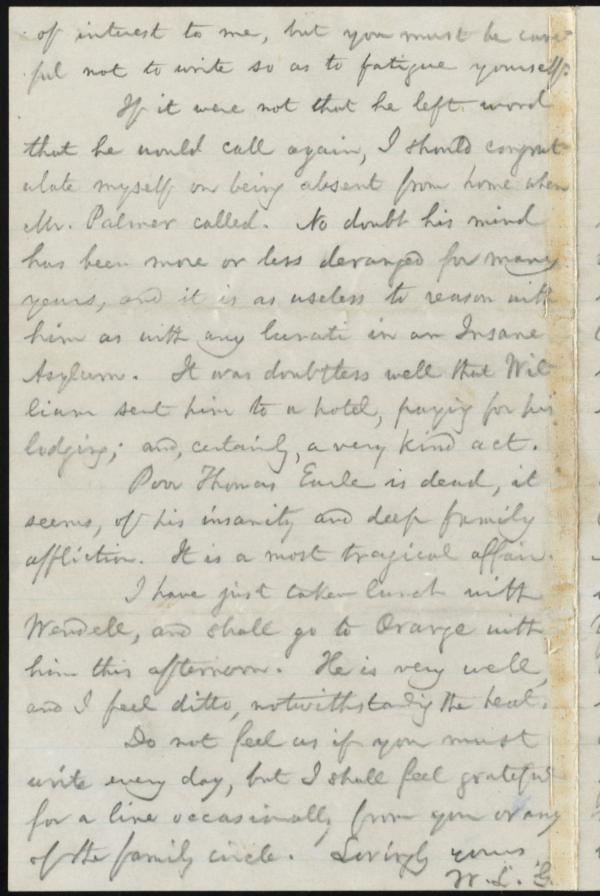 of interest to me, but you must be care-
ful not to write so as to fatigue yourself.
If it were not that he left word
that he would call again, I should congrat-
ulate myself on being absent from home when
Mr. Palmer called. No doubt his mind
has been more or less deranged for many
years, and it is as useless to reason with
him as with any lunatic in an Insane
Asylum. It was doubtless well that Wil-
liam sent him to a hotel, paying for his
lodging; and, certainly, a very kind act.
Poor Thomas Earle is dead, it
seems, of his insanity and deep family
affliction. It is a most tragical affair.
I have just taken lunch with
Wendell, and shall go to Orange with
him this afternoon. He is very well,
and I feel ditto, notwithstanding the heat.
Do not feel as if you must
write every day, but I shall feel grateful
for a line occasionally from you or any
of the family circle. Lovingly yours
W. L. G.